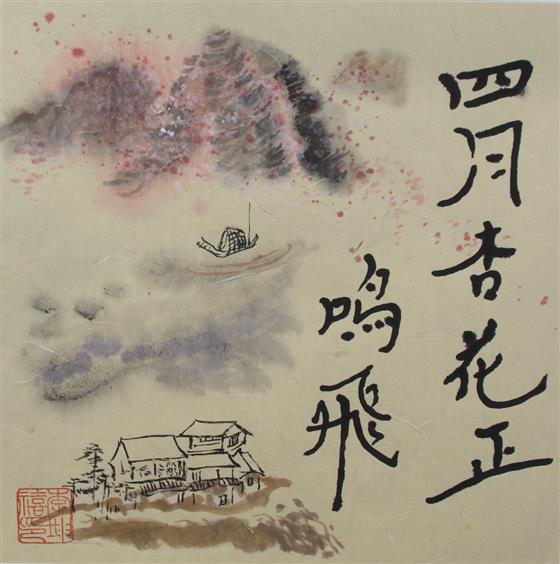 四月杏花正
鸣飛